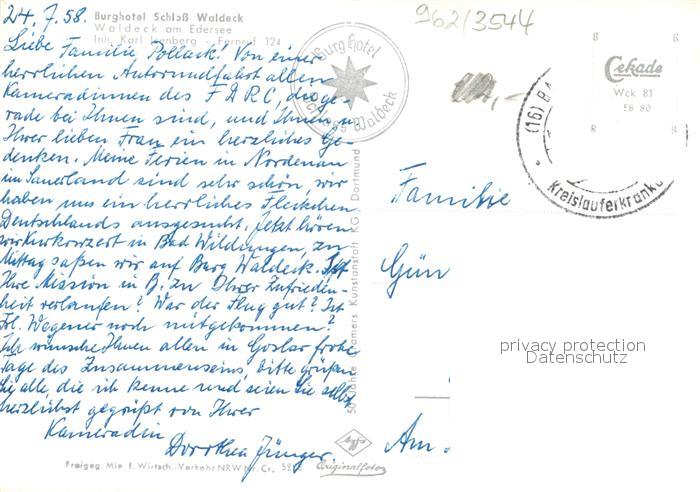 24.7.58.
Burghotel Schloß Waldeck
Waldeck am Edersee
Inh. Karl Isenberg - Fernruf 124
Liebe Familie Pollack! Von einer
herrlichen Autorundfahrt allen
Kameradinnen des F D R C, die ge-
rade bei Ihnen sind, und Ihnen u.
Ihrer lieben Frau ein herzliches Ge-
denken. Meine Ferien in Nordenau
im Sauerland sind sehr schön, wir
haben uns ein herrliches Fleckchen
Deutschlands ausgesucht. Jetzt hören
wir Kurkonzert in Bad Wildungen, zu
Mittag saßen wir auf Burg Waldeck. Ist
Ihre Mission in B. zu Ihrer Zufrieden-
heit verlaufen? War der Flug gut? Ist
Frl. Wegener noch mitgekommen?
Ich wünsche Ihnen allen in Goslar frohe
Tage des Zusammenseins, bitte grüßen
Sie alle, die ich kenne und seien Sie selbst
herzlichst gegrüßt von Ihrer
Kameradin
Dorothea Jünger
Freigeg. Min. f. Wirtsch. u. Verkehr NRW Nr. Cr.
Agfa
Originalfoto
Burg Hotel
Schloss Waldeck
Kunstanstalt KG Dortmund
962/3544
Cekade
Wck 81
58 80
R R
R R
(16) BA
Kreisläuferkrank
Familie
Gün
Am
privacy protection
Datenschutz